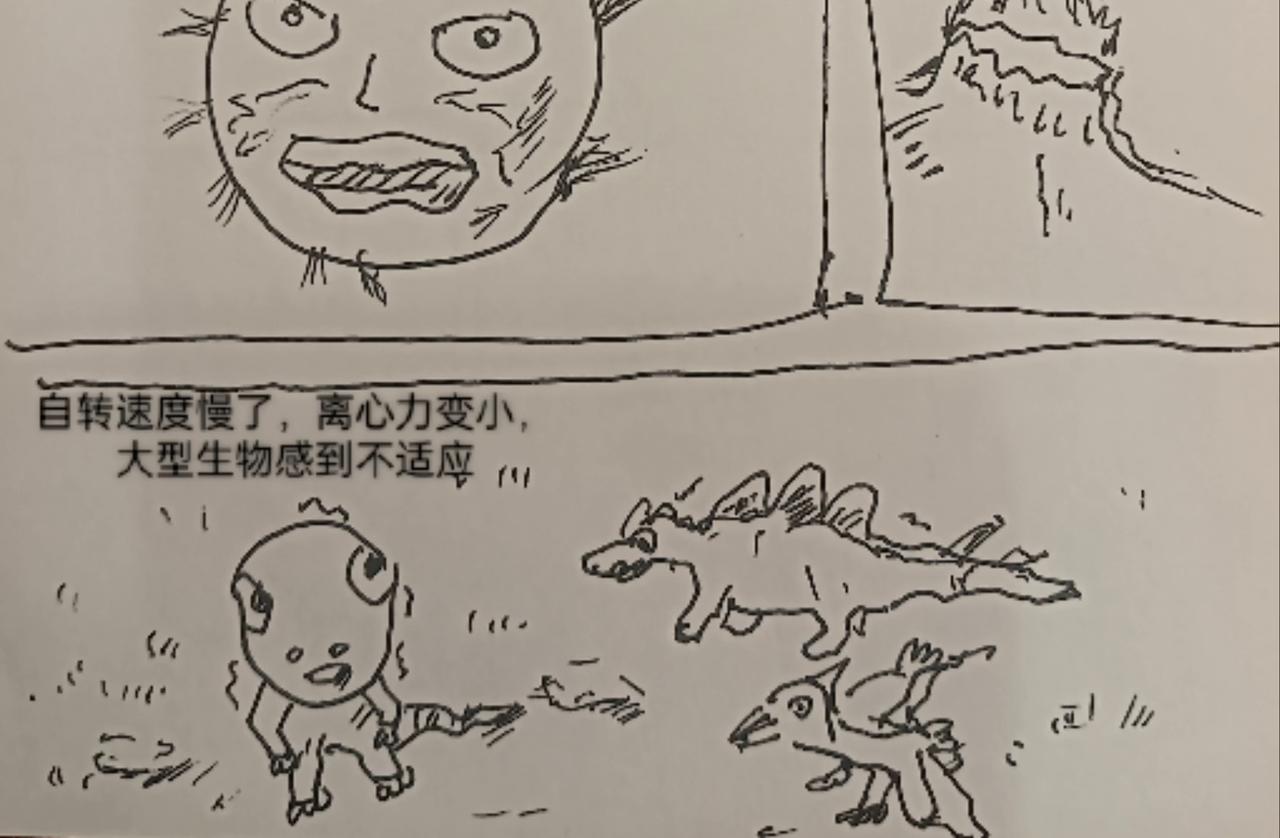 自转速度慢了，离心力变小，
大型生物感到不适应